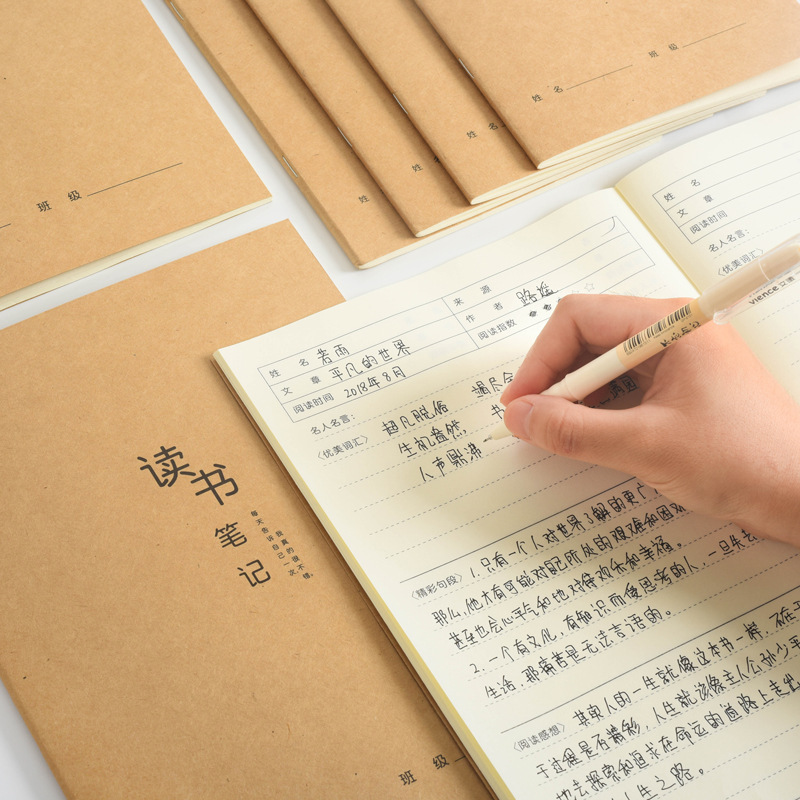 班 级
姓
姓
姓 名
姓 名 班 级
读书笔记
每天告诉自己一次,
我真的很不错。
班 级
姓 名 若雨
来 源
文 章 平凡的世界
作 者 路遥
阅读时间 2018年8月
阅读指数
名人名言:
〈优美词汇〉 超凡脱俗
生机盎然,
人声鼎沸
〈精彩句段〉 1.只有一个人对世界了解的更广
那么,他才有可能对自己所处的艰难和困
甚至也会心平气和地对待欢乐和幸福。
2.一个有文化,有知识而使思考的人,一旦失去
生活,那痛苦是无法言语的。
〈阅读感想〉 其实人的一生就像这本书一样,
于过程是否精彩,人生就该像主人公孙少平
他去探索和追求在命运的道路上走出
人生之路。
姓 名
文 章
阅读时间
名人名言:
〈优美词汇〉
vience